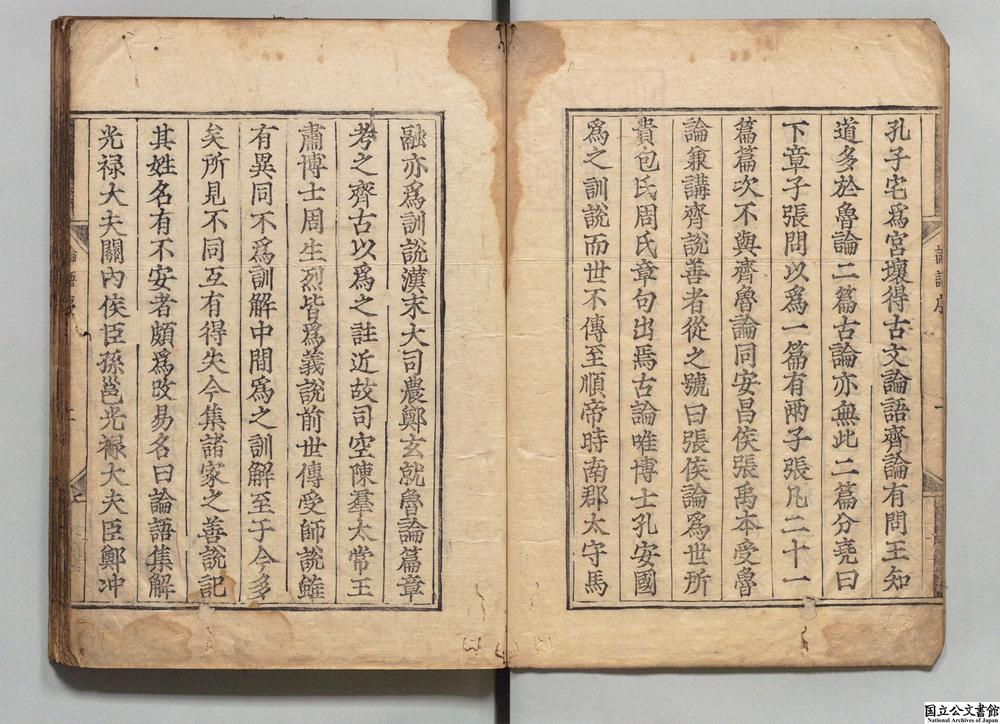 孔子宅爲宮壞得古文論語齊論有問王知
道多於魯論二篇古論亦無此二篇分堯曰
下章子張問以爲一篇有兩子張凡二十一
篇篇次不與齊魯論同安昌侯張禹本受魯
論兼講齊說善者從之號曰張侯論爲世所
貴包氏周氏章句出焉古論唯博士孔安國
爲之訓說而世不傳至順帝時南郡太守馬
融亦爲訓說漢末大司農鄭玄就魯論篇章
考之齊古以爲之註近故司空陳羣太常王
肅博士周生烈皆爲義說前世傳受師說雖
有異同不爲訓解中間爲之訓解至于今多
矣所見不同互有得失今集諸家之善說記
其姓名有不安者頗爲攺易名曰論語集解
光禄大夫關內侯臣孫邕光禄大夫臣鄭冲
論語序
一
論語序
二
国立公文書館
National Archives of Japan